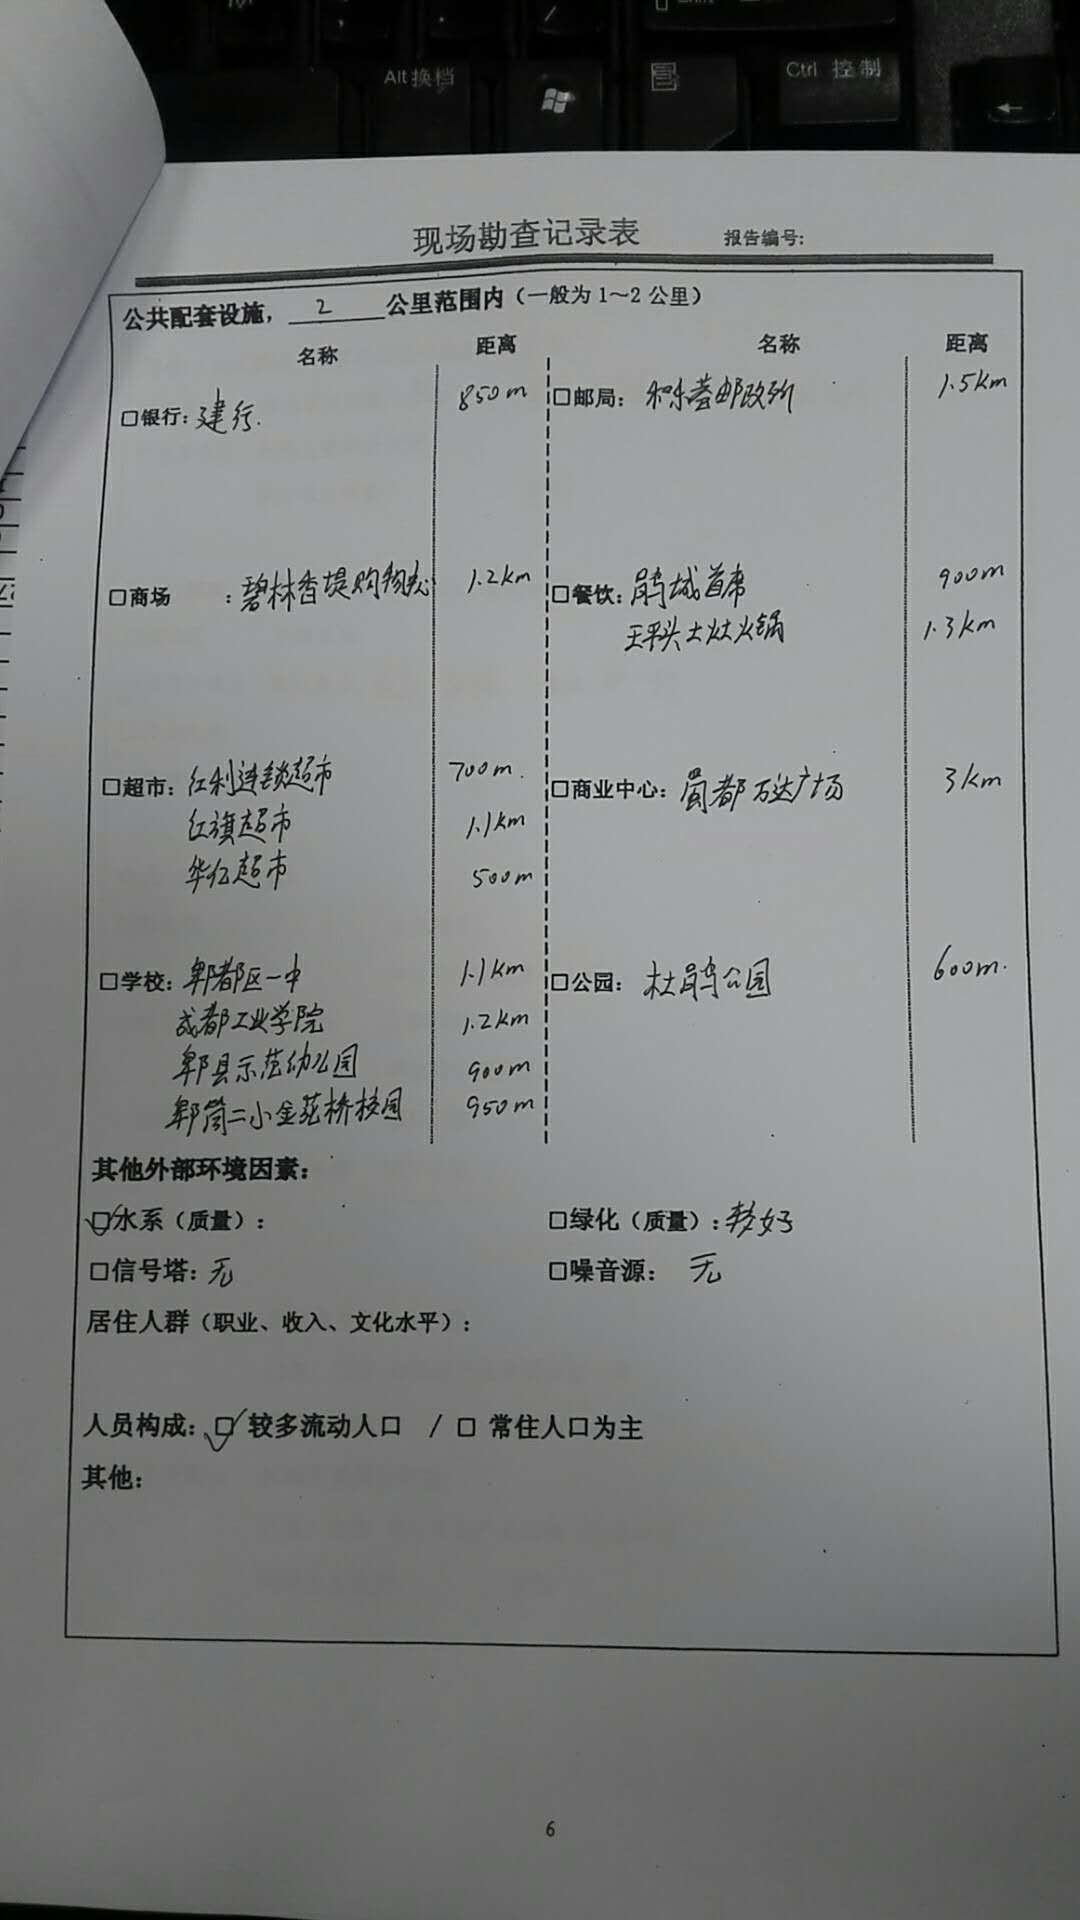 Alt 换档
Ctrl 控制
现场勘查记录表 报告编号:
公共配套设施， 2 公里范围内（一般为 1～2 公里）
名称 距离 名称 距离
□银行: 建行. 850m □邮局: 邮政所 1.5km
□商场 : 碧林香堤购物 1.2km □餐饮: 鹃城首席 900m
王平头土灶火锅 1.3km
□超市: 红利连锁超市 700m. □商业中心: 蜀都万达广场 3km
红旗超市 1.1km
华亿超市 500m
□学校: 郫都区一中 1.1km □公园: 杜鹃公园 600m.
成都工业学院 1.2km
郫县示范幼儿园 900m
郫筒二小金花桥校园 950m
其他外部环境因素:
☑水系（质量）: □绿化（质量）: 较好
□信号塔: 无 □噪音源: 无
居住人群（职业、收入、文化水平）:
人员构成: ☑ 较多流动人口 / □ 常住人口为主
其他:
6